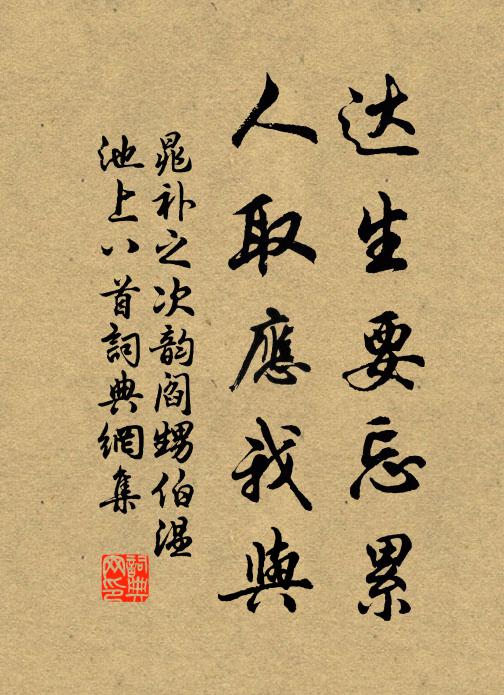 达生要忘累
人取應我與
晁补之次韵阎甥伯温
池上八首詞典網集
詞典
网印